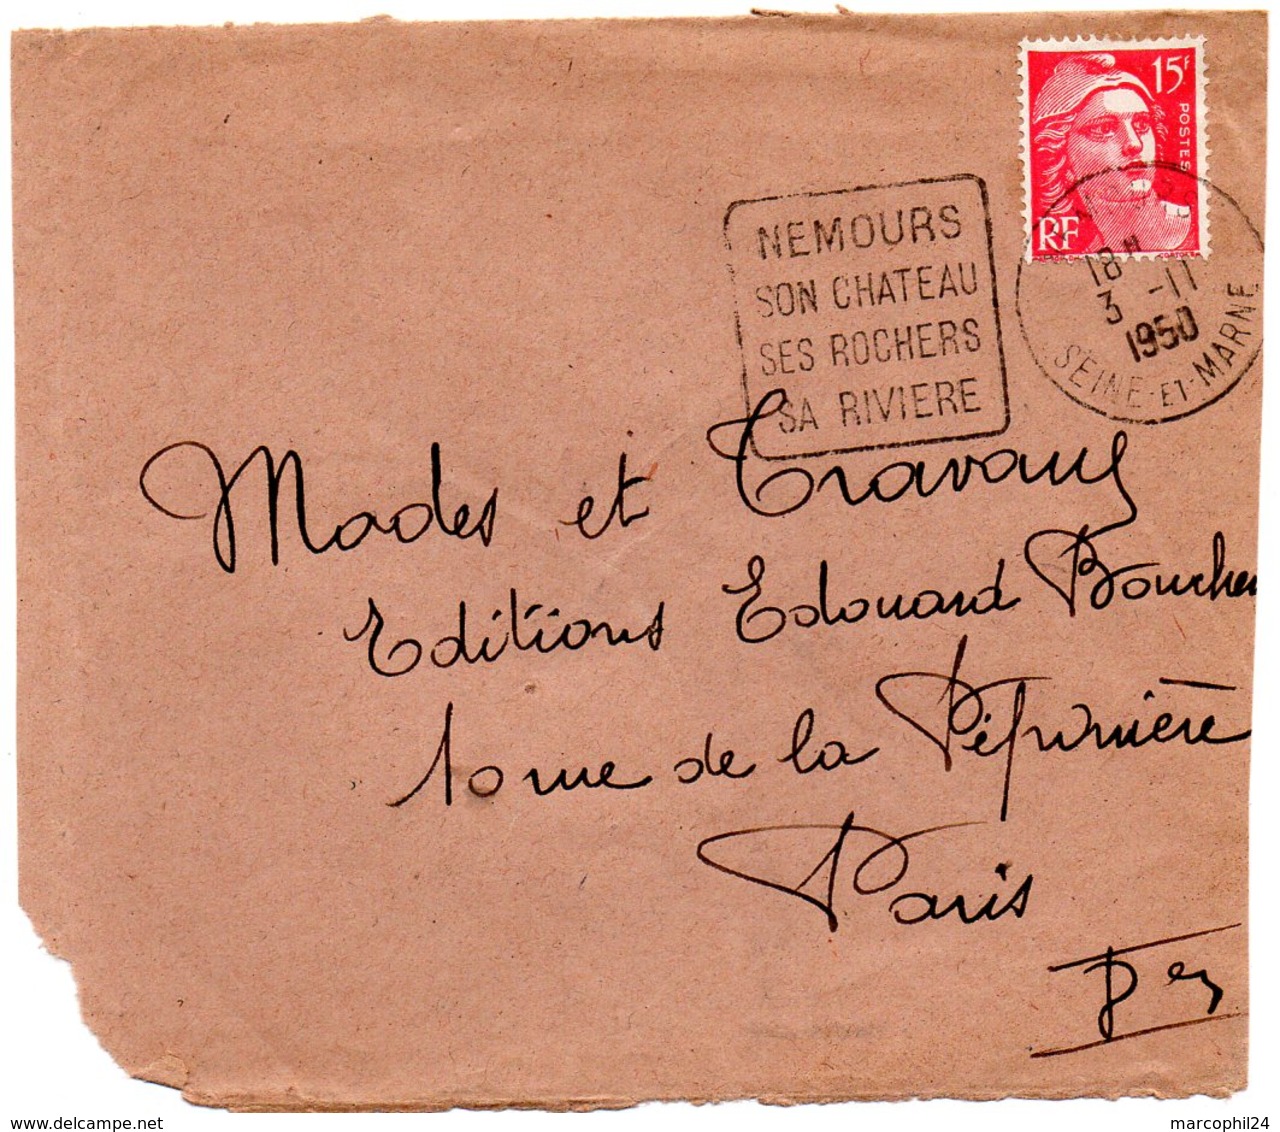 15F
POSTES
RF
NEMOURS
SON CHATEAU
SES ROCHERS
SA RIVIERE
18H
3 -11
1950
SEINE-ET-MARNE
Modes et Travaux
Editions Edouard Boucher
10 rue de la Pépinière
Paris
marcophil24